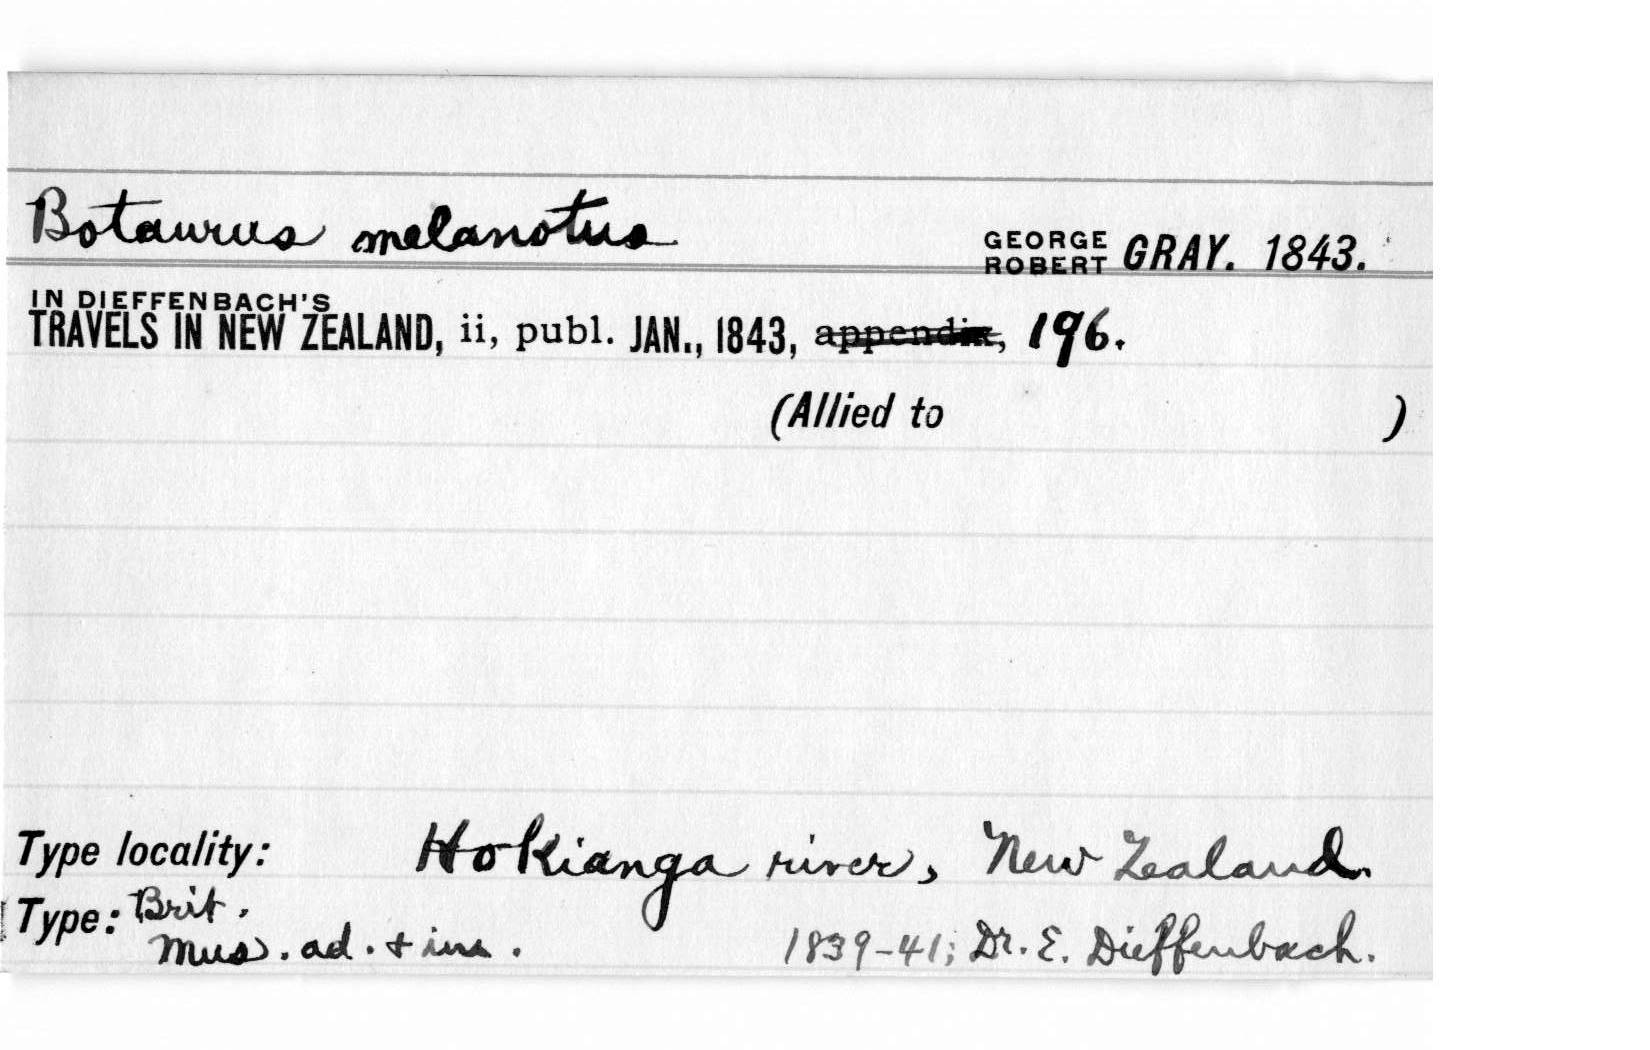 Botaurus melanotus
GEORGE ROBERT GRAY. 1843.
IN DIEFFENBACH'S
TRAVELS IN NEW ZEALAND, ii, publ. JAN., 1843, appendix, 196.
(Allied to )
Type locality: Hokianga river, New Zealand.
Type: Brit.
Mus. ad. + im. 1839-41; Dr. E. Dieffenbach.